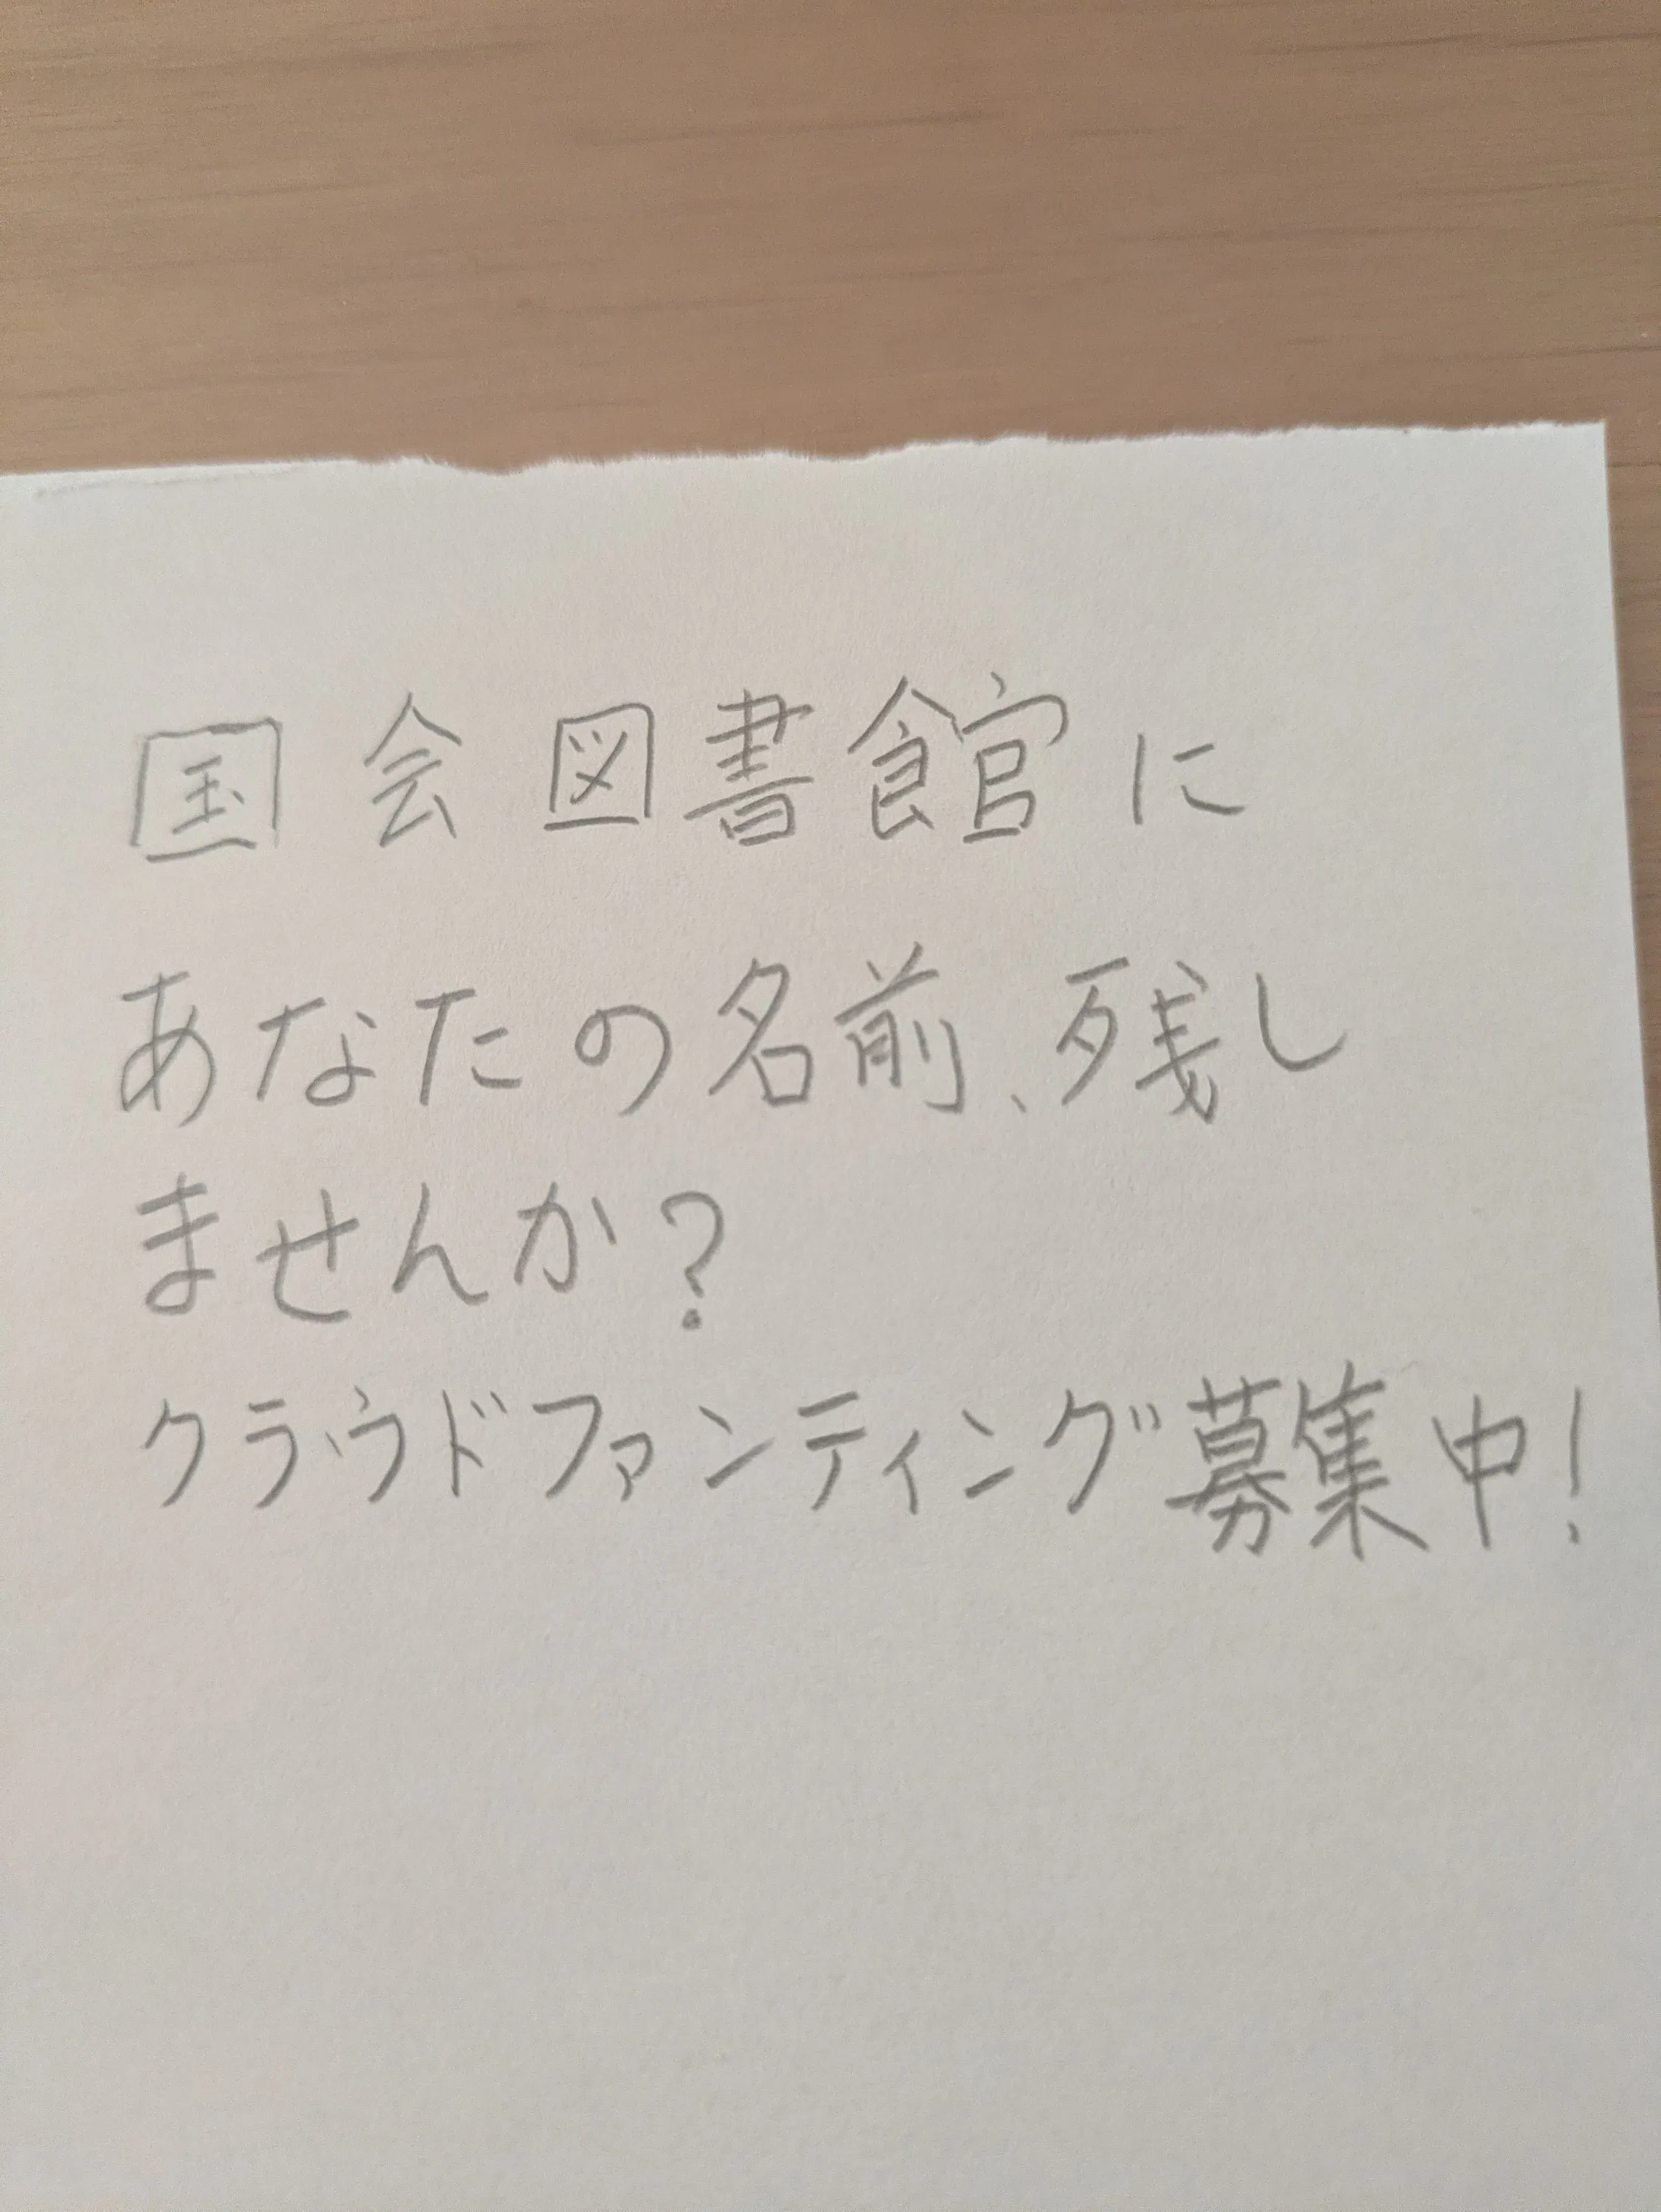 国会図書館に
あなたの名前、残し
ませんか?
クラウドファンティング募集中!